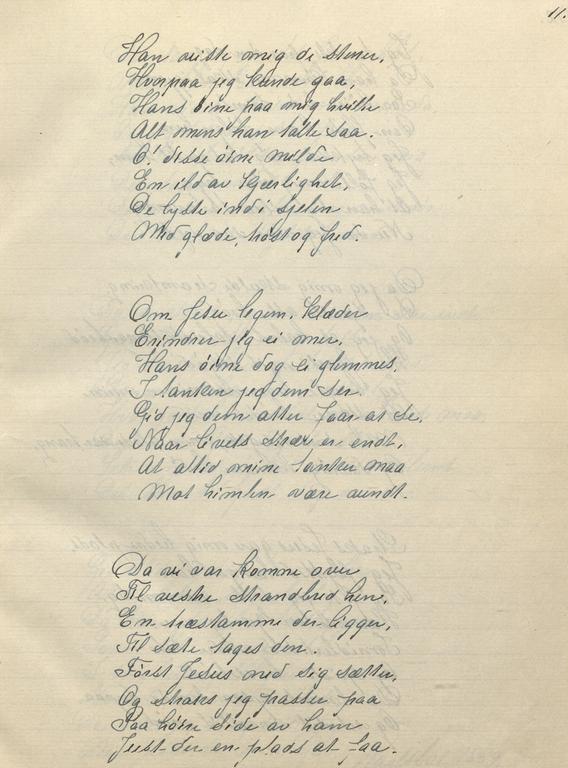 11.
Han viste mig de stener,
Hvorpaa jeg kunde gaa,
Hans öine paa mig hvilte
Alt mens han talte saa.
O! disse öine milde
En ild av kjærlighet,
De lyste ind i sjelen
Med glæde, tröst og fred.
Om Jesu legem, klæder
Erindrer jeg ei mer,
Hans öine dog ei glemmes,
I tanken jeg dem ser.
Gid jeg dem atter faar at se,
Naar livets stræv er endt,
At altid mine tanker maa
Mot himlen være vendt.
Da vi var komne over
Til vestre strandbred hen,
En træstamme der ligger,
Til sæte tages den.
Först Jesus ned sig sætter,
Og straks jeg passer paa
Paa höire side av ham
Just der en plads at faa.